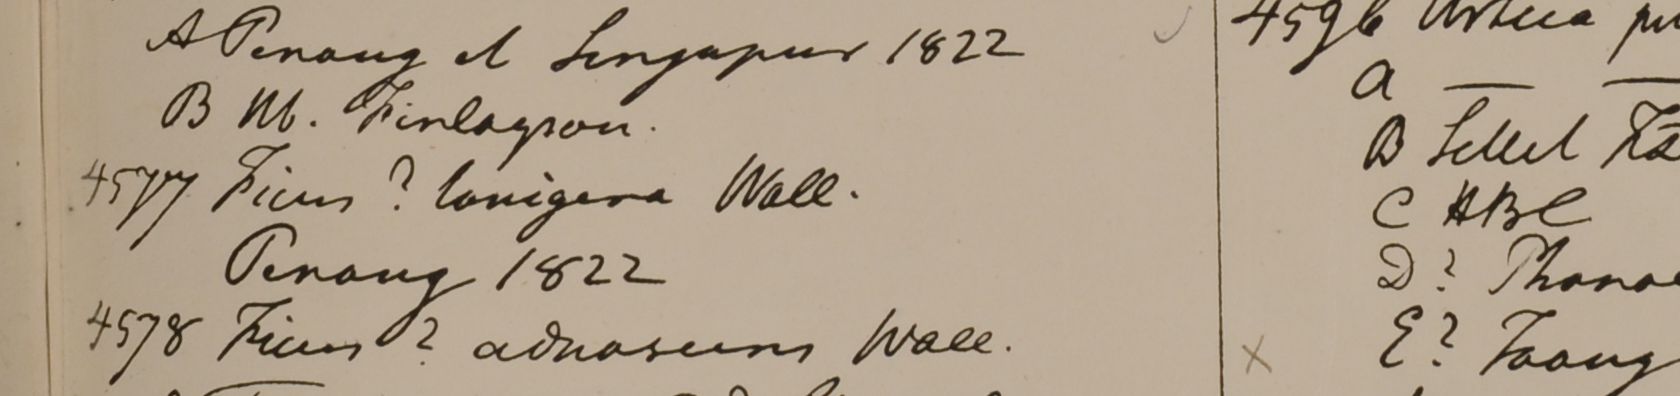 A Penang et Singapur 1822
B Hb. Finlayson.
4577 Ficus ? lanigera Wall.
Penang 1822
4578 Ficus ? adnascens Wall.
4596 Urtica
a
B Sillet
C HBC
D ?
E ? Taong